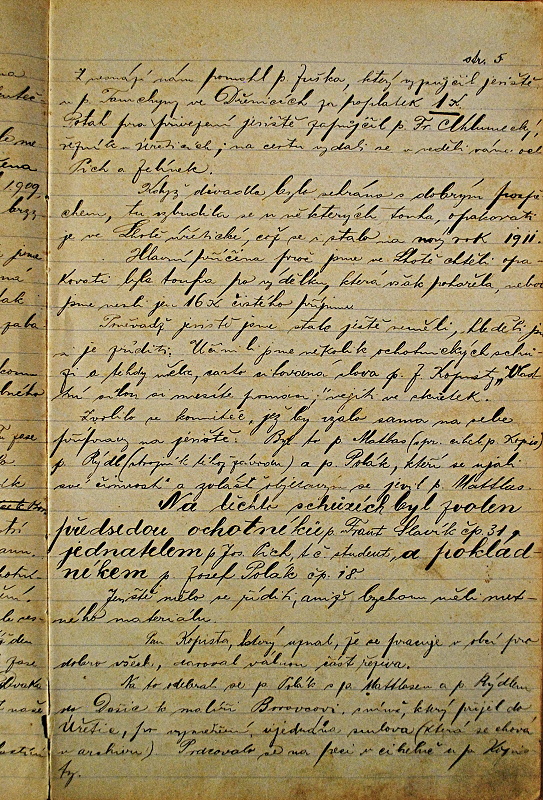 str. 5
Z nesnází nám pomohl p. Juška, který vypůjčil jeviště
u p. Tamchyny ve Dřenicích za poplatek 1 K.
Potah pro přivezení jeviště zapůjčil p. Fr. Chlumecký,
řezník v Úřeticích; na cestu vydali se v neděli ráno oct.
Pich a Zelinek.
Když divadlo bylo sehráno s dobrým prospě-
chem, tu vzbudila se u některých touha, opakovati
je ve Lhotě úřetické, což se i stalo na nový rok 1911.
Hlavní příčina proč jsme ve Lhotě chtěli opa-
kovati byla touha po výdělku, která však pohořela, neboť
jsme nesli jen 16 K čistého příjmu.
Poněvadž jeviště jsme stále ještě neměli, hleděli jsme
si je zříditi. Učinili jsme několik ochotnických schů-
zí a tehdy měla, často citovaná slova p. J. Kopisty „Vlast-
ní silou si musíte pomoci," vejíti ve skutek.
Zvolilo se komitéé, jež by vzalo samo na sebe
přípravy na jeviště. Byl to p. Mattas (spr. cihel. p. Kopisty)
p. Rýdl (strojník téhož závodu) a p. Polák, kteří se ujali
své činnosti a zvláště obětavým se jevil p. Mattas.
Na těchto schůzích byl zvolen
předsedou ochotnické p. Frant. Slavík čp. 31,
jednatelem p. Jos. Pich, t. č. student, a poklad-
níkem p. Josef Polák čp. 18.
Jeviště mělo se zříditi, aniž bychom měli nut-
ného materiálu.
Pan Kopista, který uznal, že se pracuje v obci pro
dobro všech, daroval válnou část řeziva.
Na to odebral se p. Polák s pa. Mattasem a p. Rýdlem
do Dašic k malíři Borovcovi, s nímž, který přijel do
Úřetic, po vyměření, ujednána smlouva (která se chová
v archivu) Pracovalo se na peci v cihelně u p. Kopis-
ty.